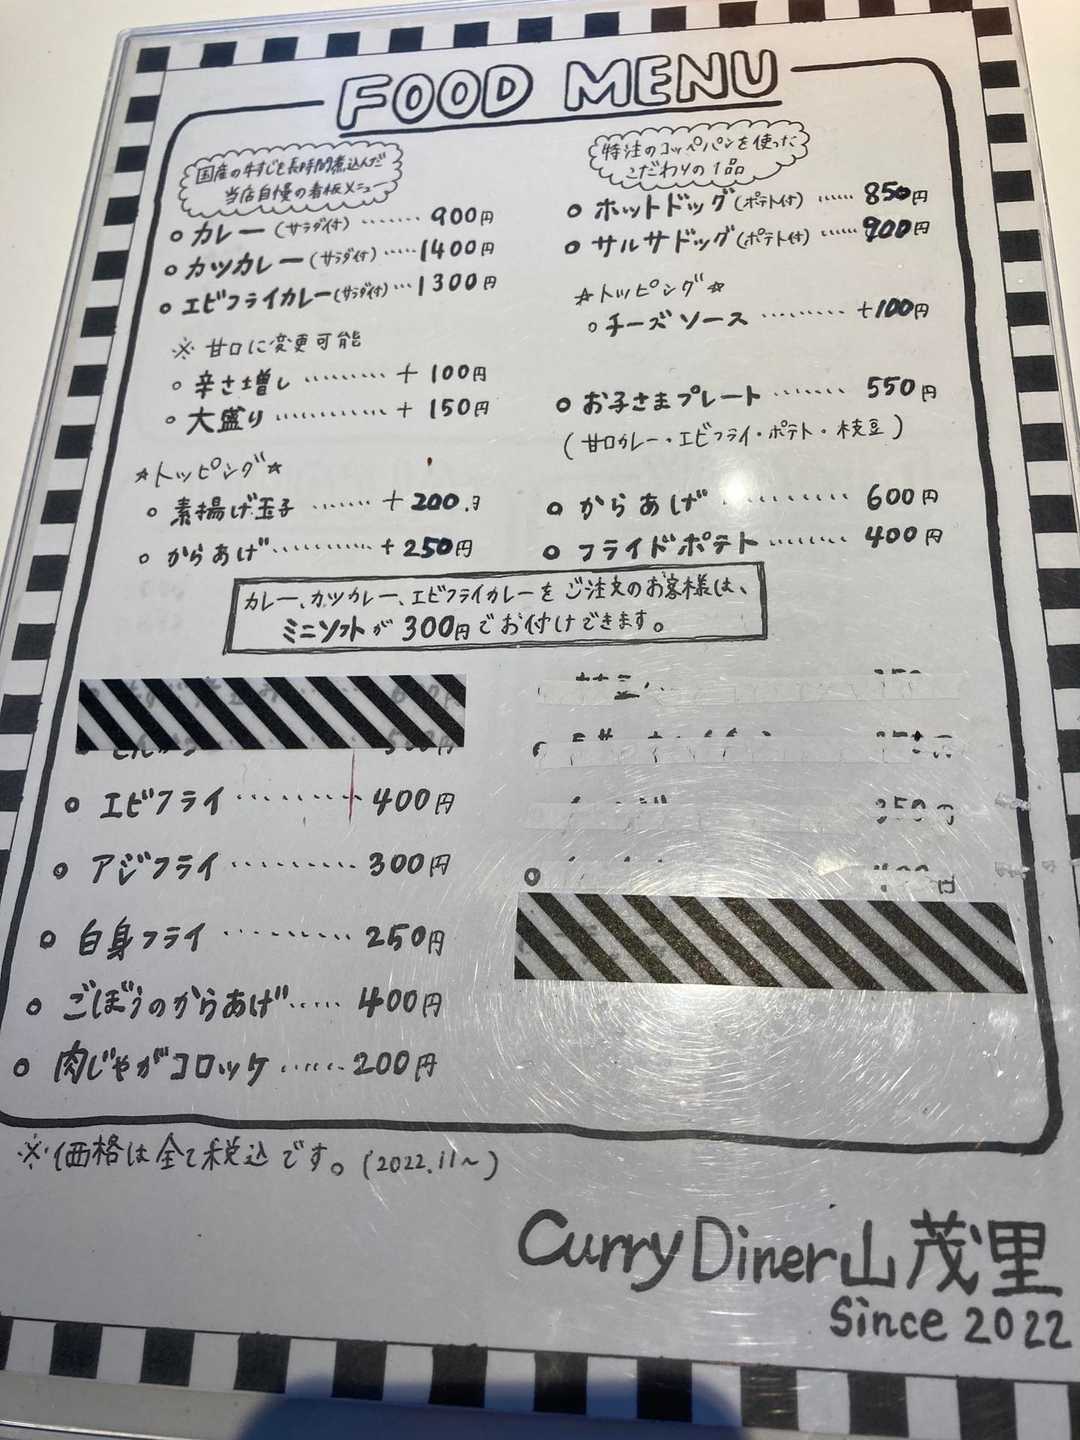 FOOD MENU
国産の牛すじを長時間煮込んだ
当店自慢の看板メニュー
○カレー(サラダ付)……900円
○カツカレー(サラダ付)……1400円
○エビフライカレー(サラダ付)…1300円
※甘口に変更可能
○辛さ増し………+100円
○大盛り…………+150円
☆トッピング☆
○素揚げ玉子……+200円
○からあげ…………+250円
特注のコッペパンを使った
こだわりの1品
○ホットドッグ(ポテト付)……850円
○サルサドッグ(ポテト付)……900円
☆トッピング☆
○チーズソース………+100円
○お子さまプレート………550円
(甘口カレー・エビフライ・ポテト・枝豆)
○からあげ…………600円
○フライドポテト………400円
カレー、カツカレー、エビフライカレーをご注文のお客様は、
ミニソフトが300円でお付けできます。
○エビフライ…………400円
○アジフライ…………300円
○白身フライ…………250円
○ごぼうのからあげ……400円
○肉じゃがコロッケ……200円
350円
400円
※価格は全て税込です。(2022.11~)
Curry Diner 山茂里
Since 2022